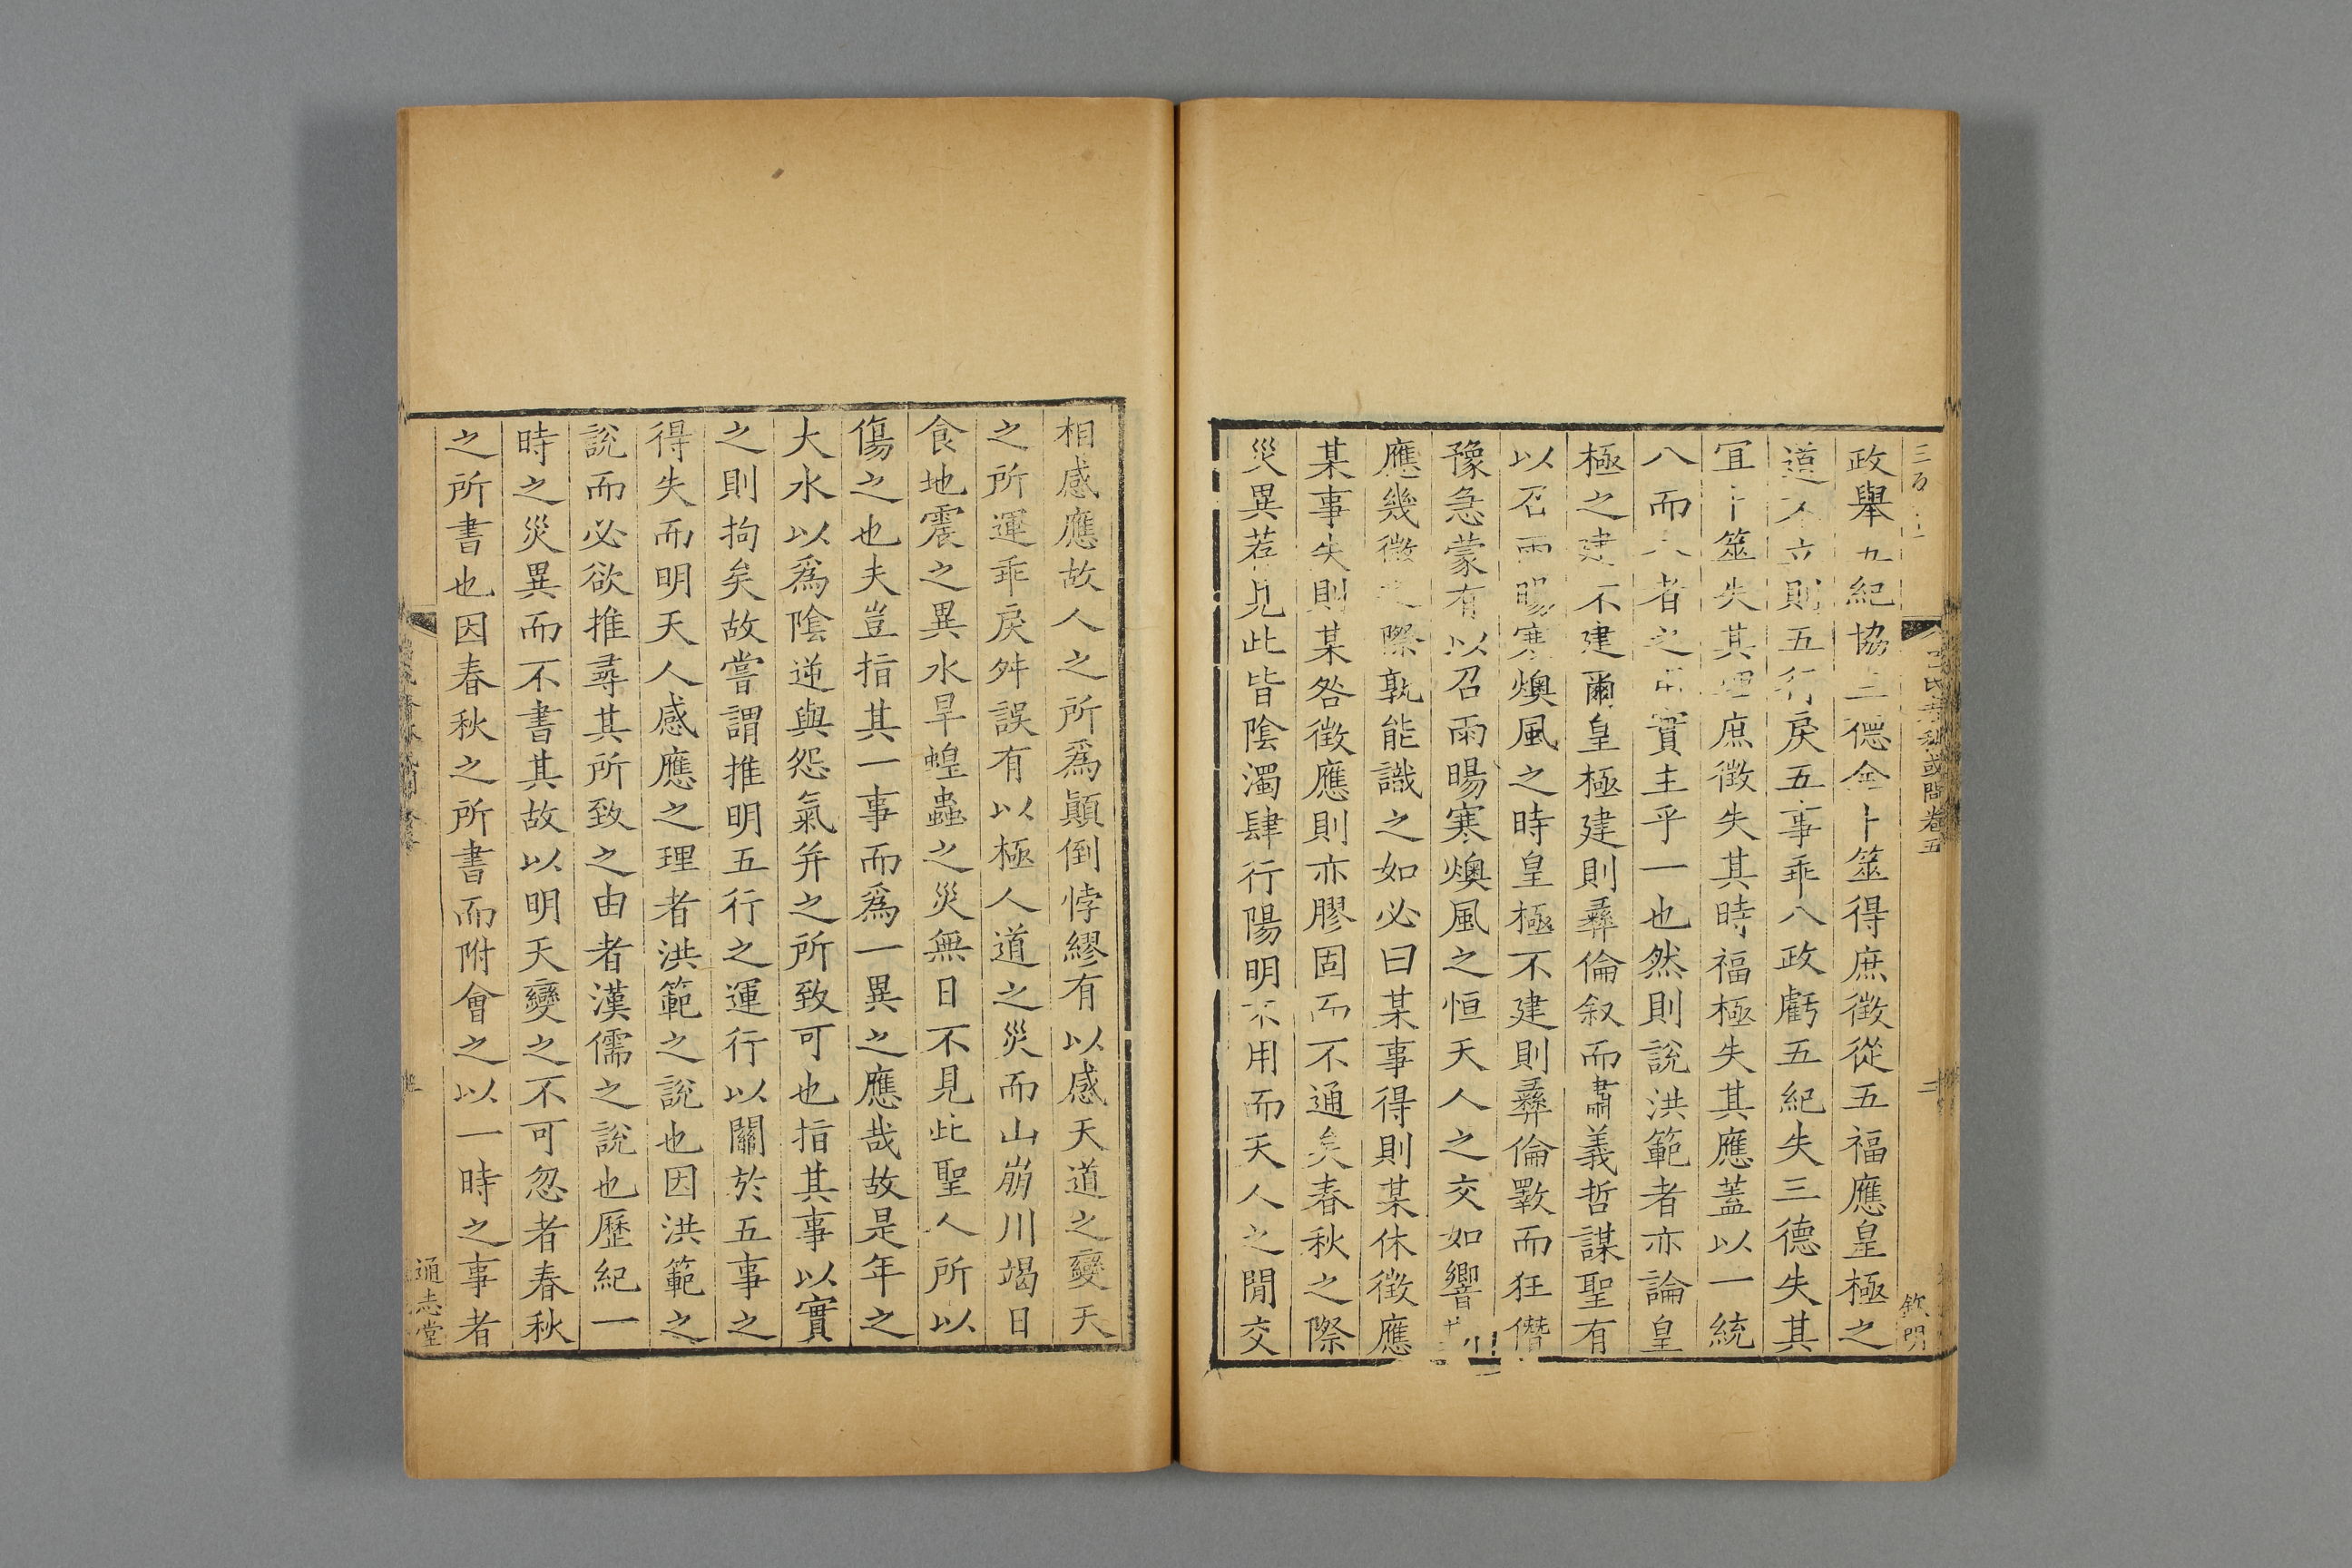 政舉五紀協三德全卜筮得庶徵從五福應皇極之
道不立則五行戾五事乖八政虧五紀失三德失其
宜卜筮失其理庶徵失其時福極失其應蓋以一統
八而八者之用實主乎一也然則說洪範者亦論皇
極之建不建爾皇極建則彝倫叙而肅義哲謀聖有
以召雨暘寒燠風之時皇極不建則彝倫斁而狂僭
豫急蒙有以召雨暘寒燠風之恒天人之交如響
應幾微之際孰能識之如必曰某事得則某休徵應
某事失則某咎徵應則亦膠固而不通矣春秋之際
災異荐見此皆陰濁肆行陽明不用而天人之間交
呂氏春秋或問卷五
二
欽明
相感應故人之所爲顚倒悖繆有以感天道之變天
之所運乖戾舛誤有以極人道之災而山崩川竭日
食地震之異水旱蝗蟲之災無日不見此聖人所以
傷之也夫豈指其一事而爲一異之應哉故是年之
大水以爲陰逆與怨氣并之所致可也指其事以實
之則拘矣故嘗謂推明五行之運行以關於五事之
得失而明天人感應之理者洪範之說也因洪範之
說而必欲推尋其所致之由者漢儒之說也歷紀一
時之災異而不書其故以明天變之不可忽者春秋
之所書也因春秋之所書而附會之以一時之事者
通志堂